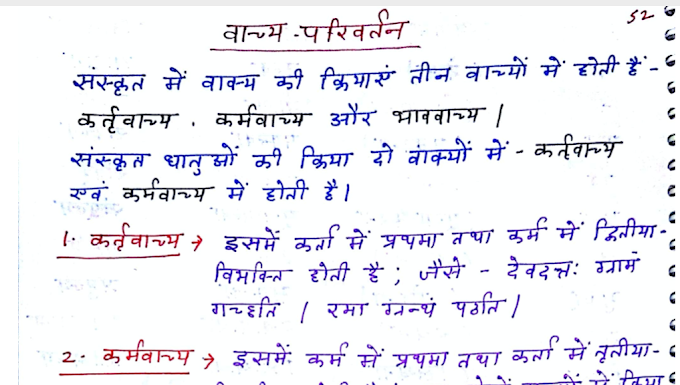 52
वाच्य - परिवर्तन
संस्कृत में वाक्य की क्रियाएं तीन वाच्यों में होती हैं -
कर्तृवाच्य , कर्मवाच्य और भाववाच्य |
संस्कृत धातुओं की क्रिया दो वाक्यों में - कर्तृवाच्य
एवं कर्मवाच्य में होती है।
1. कर्तृवाच्य → इसमें कर्ता में प्रथमा तथा कर्म में द्वितीया-
विभक्ति होती है ; जैसे - देवदत्तः ग्रामं
गच्छति | रमा ग्रन्थं पठति |
2. कर्मवाच्य → इसमें कर्म में प्रथमा तथा कर्ता में तृतीया-
में क्रिया